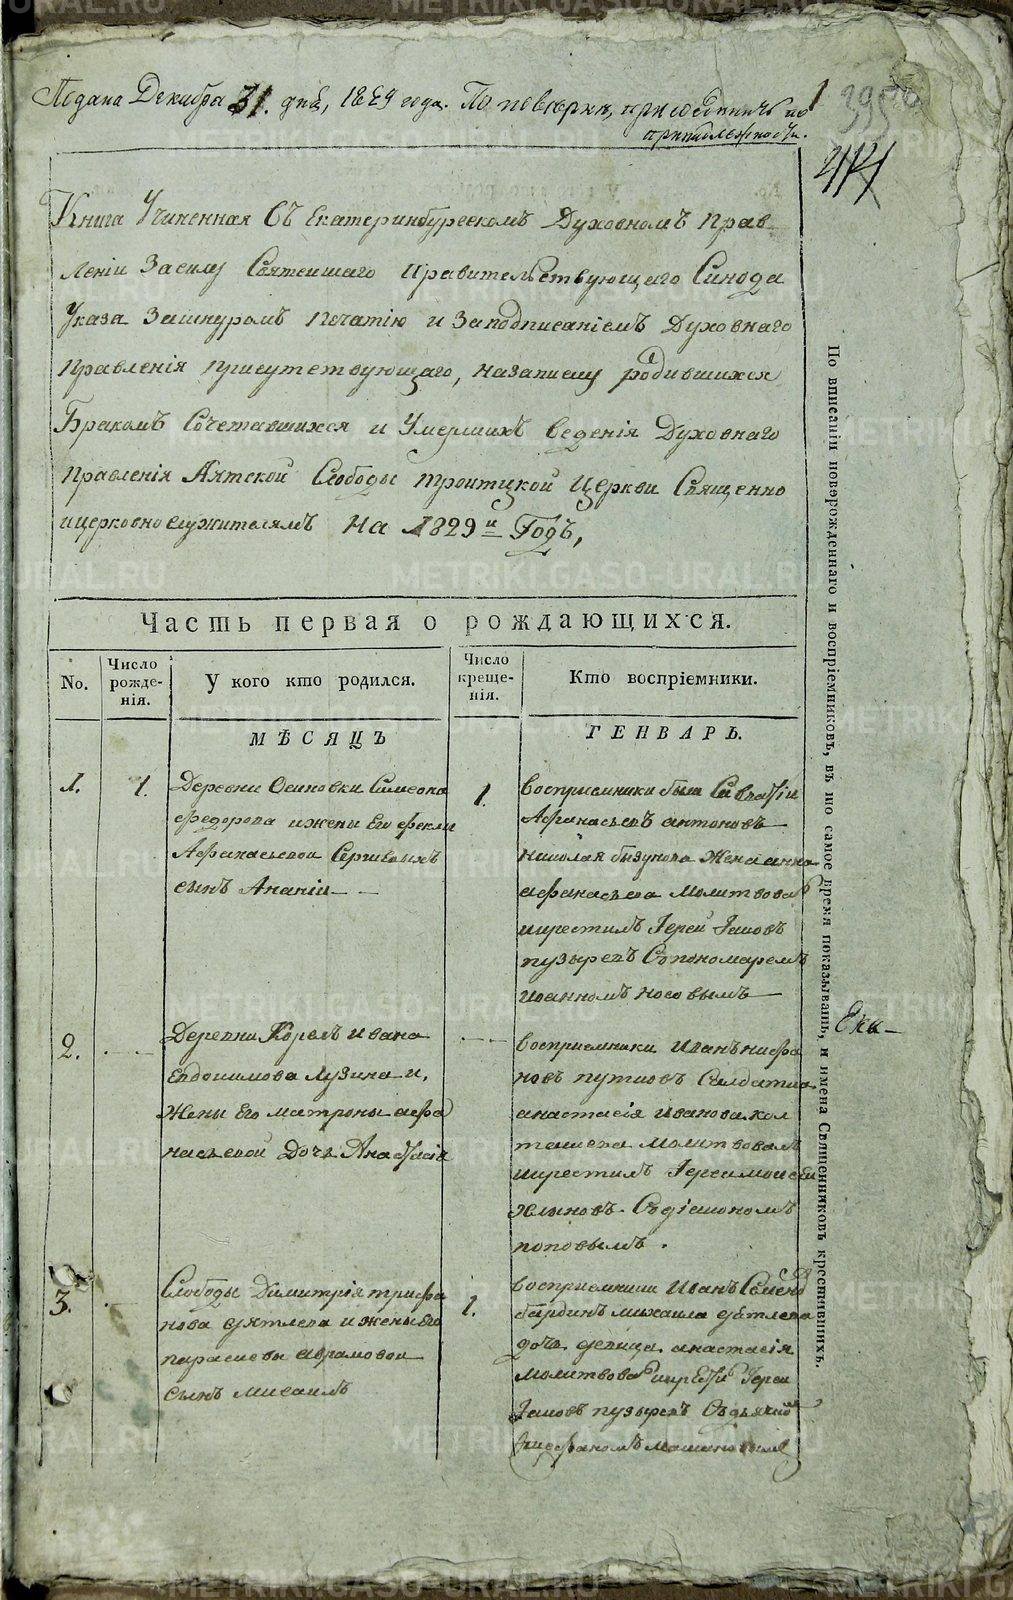 Подана Декабря 31. дня, 1829 года. По поверкѣ, присоединить по
принадлежности.
1
414
Книга Учиненная Съ Екатеринбургскомъ Духовномъ Прав
леніи Засилу Святеишаго Правительствующаго Синода
Указа Зашнуромъ Печатію и Заподписаніемъ Духовнаго
Правленія Присутствующаго, Назаписку родившихся
Бракомъ Сочетавшихся и Умершихъ Веденія Духовнаго
Правленія Аятской Слободы Троитцкой Церкви Священно
ицерковнослужителямъ На 1829й Годъ,
Часть первая о рождающихся.
No.
Число рожде-нія.
У кого кто родился.
Число креще-нія.
Кто воспріемники.
МѢСЯЦЪ
ГЕНВАРЬ.
1.
1.
Деревни Осиновки Симеона
Федорова ижены Его Феклы
Афанасьевои
сынъ Ананіи
1.
Восприемники были
Афанасьевъ антоновъ
Николая Жена анна
афанасьева Молитвова
икрестилъ Іереи Іаковъ
пузыревъ Спономаремъ
иоанномъ Носовымъ
2.
Деревни Корелъ ивана
Евдокимова Лузина и,
Жены Его матроны афа
насьевои Дочь Анастасія
Восприемники Иванъ
новъ путковъ Салдатка
анастасія иванова
Молитвовалъ
икрестилъ Іереи моисеи
Съдіакономъ
поповымъ.
Ека-
3.
Слободы Димитрія трифа
нова дятлева и жены Его
парасковьи аврамовои
Сынъ михаилъ
1.
Восприемники Иванъ Семено
Бардинъ михаила дятлева
дочь девица анастасія
Молитвова икрести Іереи
Іаковъ пузыревъ Съдьячкой
По вписаніи новорожденнаго и воспріемниковъ, въ то самое время показывать, и имена Священниковъ крестившихъ.
METRIKI.GASO-URAL.RU